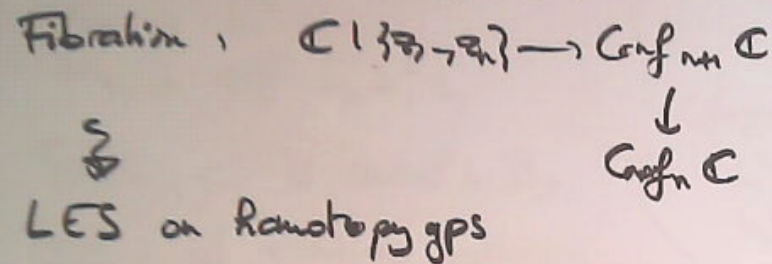 Fibration, ℂ \ {z₁, …, zₙ} → Conf_{n+1} ℂ
↓
Conf_n ℂ
LES on homotopy gps